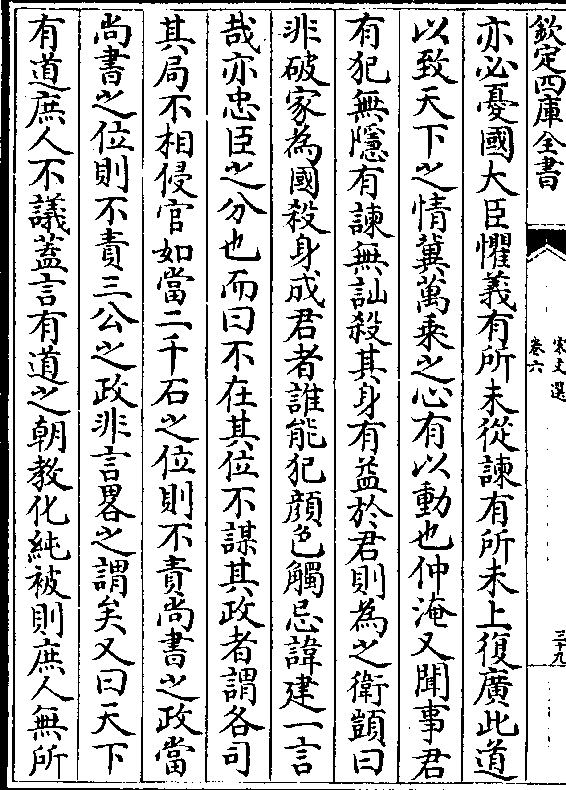 欽定四庫全書
宋文選
卷六
三十九
亦必憂國大臣懼義有所未從諫有所未上復廣此道
以致天下之情冀萬乘之心有以動也仲淹又聞事君
有犯無隱有諫無訕殺其身有益於君則為之衛顗曰
非破家為國殺身成君者誰能犯顔色觸忌諱建一言
哉亦忠臣之分也而曰不在其位不謀其政者謂各司
其局不相侵官如當二千石之位則不責尚書之政當
尚書之位則不責三公之政非言畧之謂矣又曰天下
有道庶人不議葢言有道之朝教化純被則庶人無所